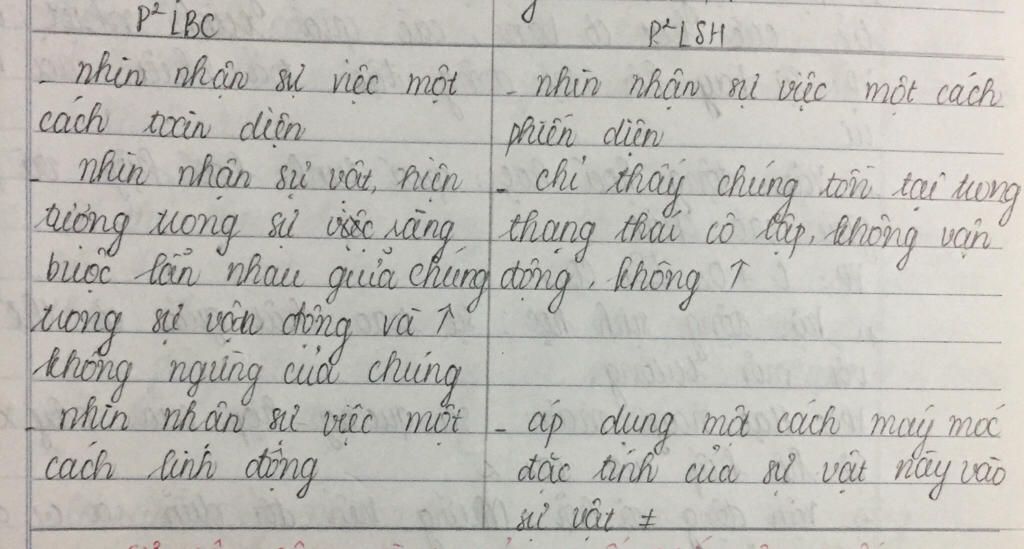 P² LBC
- nhìn nhận sự việc một
cách toàn diện
- nhìn nhận sự vật, hiện
tượng trong sự việc ràng
buộc lẫn nhau giữa chúng
trong sự vận động và ↑
không ngừng của chúng
- nhìn nhận sự việc một
cách linh động
P² LSH
- nhìn nhận sự việc một cách
phiến diện
- chỉ thấy chúng tồn tại trong
thạng thái cô lập, không vận
động, không ↑
- áp dụng một cách máy móc
đặc tính của sự vật này vào
sự vật ≠